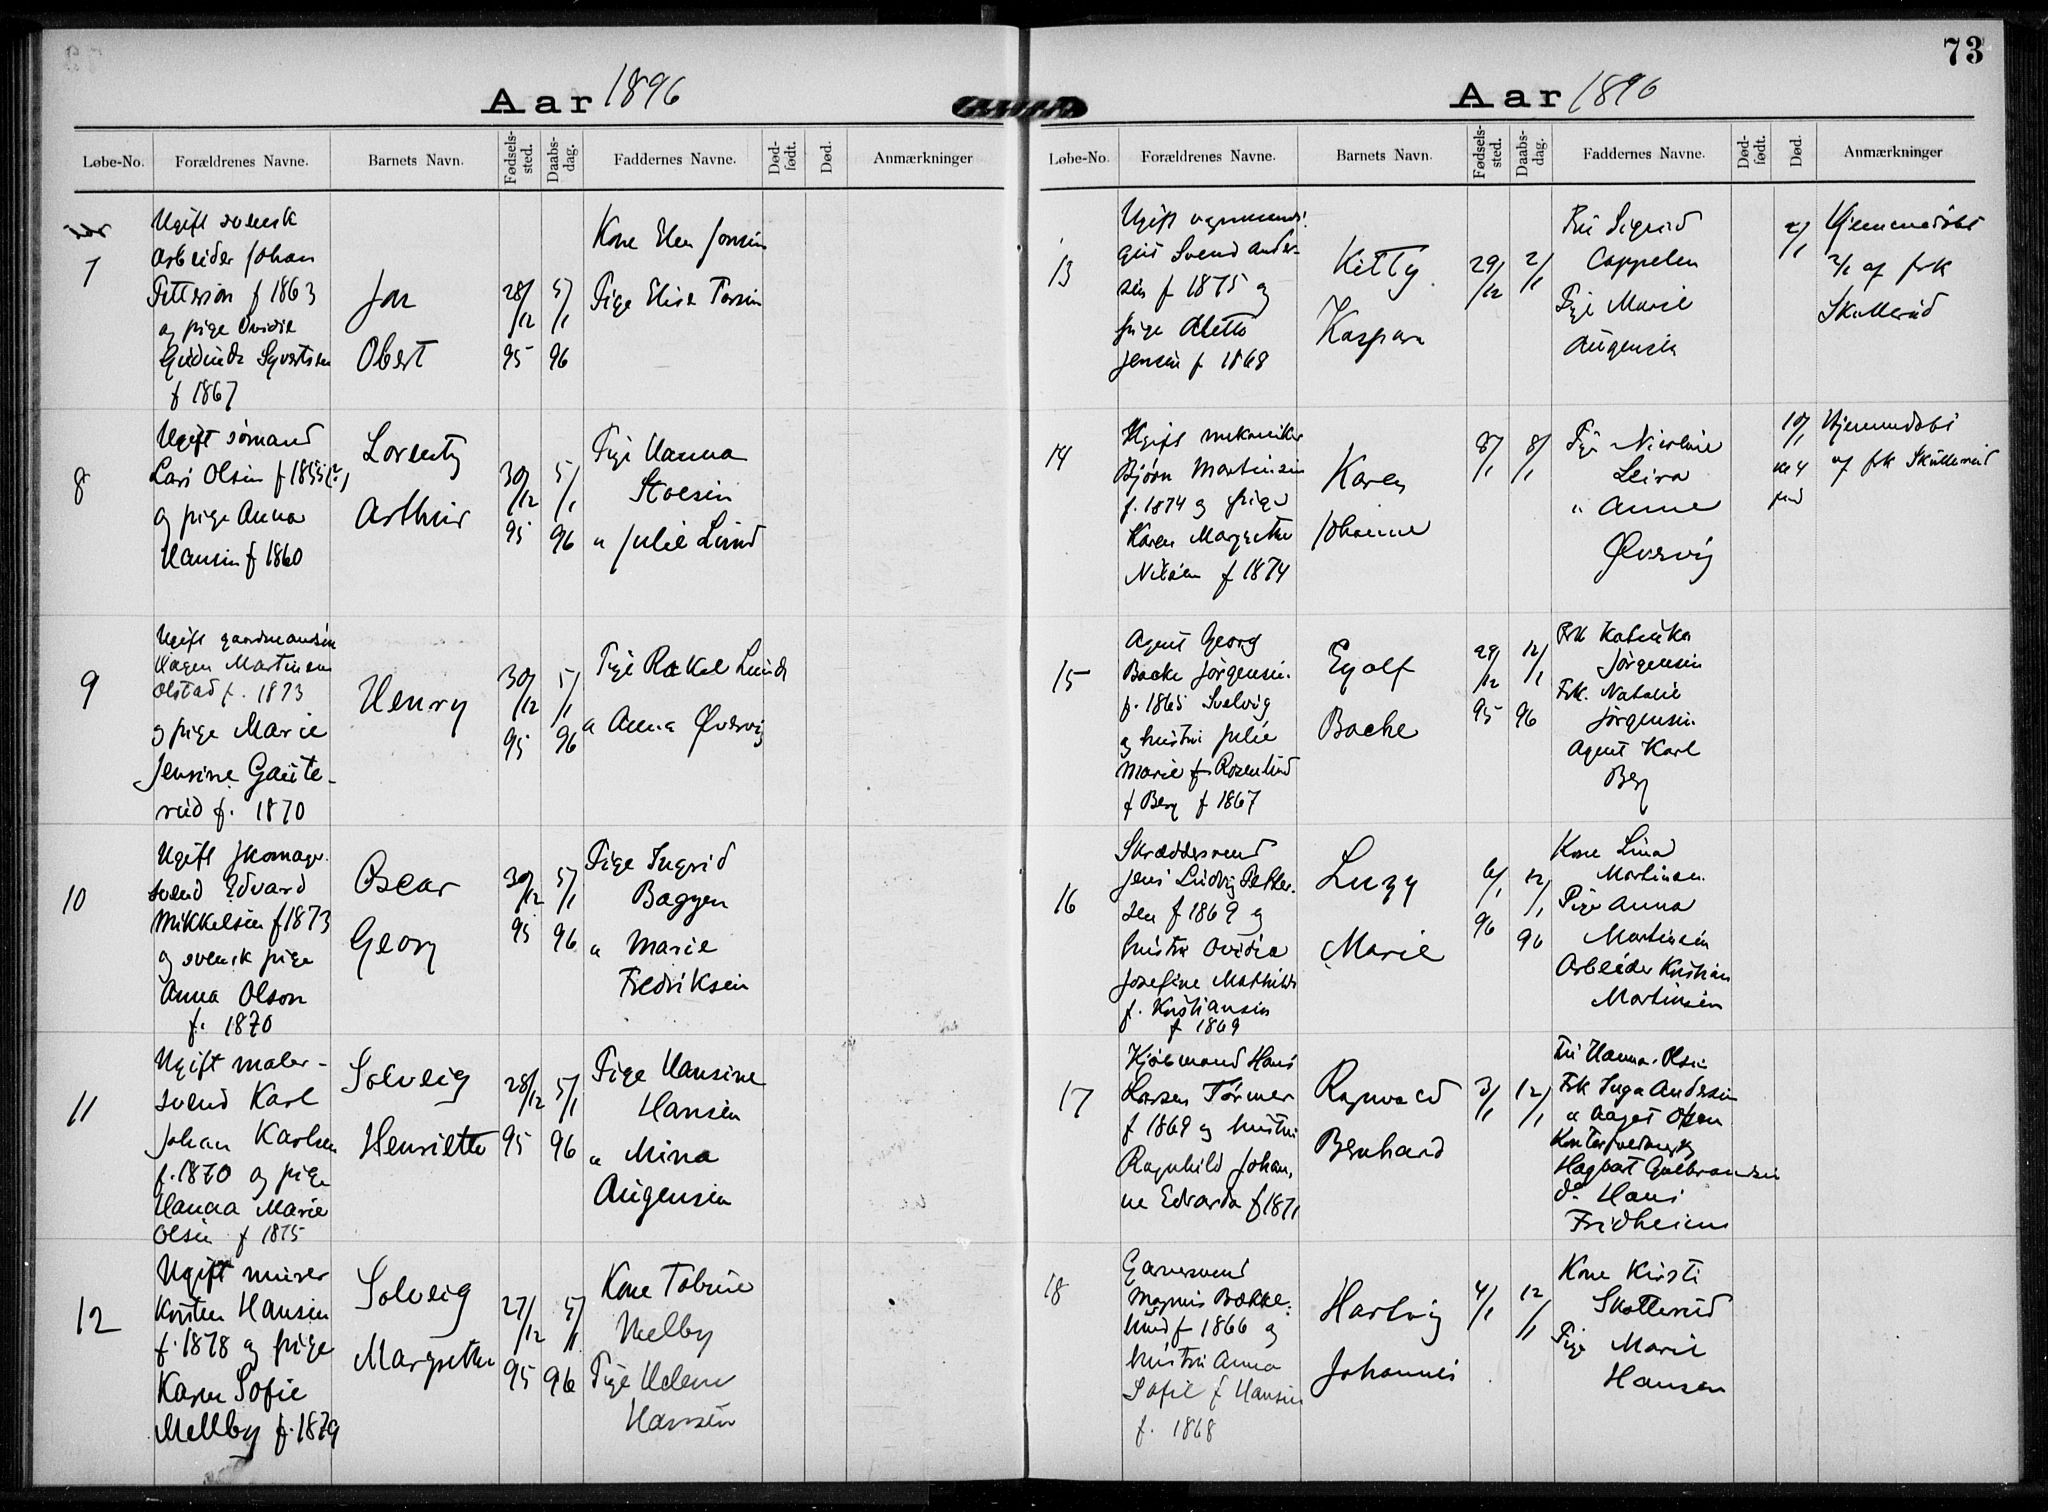 73
Aar 1896
Løbe-No. Forældrenes Navne. Barnets Navn. Fødsels-sted. Daabs-dag. Faddernes Navne. Død-født. Død. Anmærkninger
7
Ugift svensk
arbeider Johan
Petterson f 1863
og pige Ovidie
Syvertsen
f 1867
Jon
Obert
28/12
95
5/1
96
Kone Elen Jonsen
Pige Elise
8
Ugift sømand
Lars Olsen f 1855(?)
og pige Anna
Hansen f 1860
Lorentz
Arthur
30/12
95
5/1
96
Pige Hanna
Stoesen
" Julie Lund
9
Ugift gaardmandsøn
Hagen Martinsen
Olstad f. 1873
og pige Marie
Jensine Gaute-
rud f. 1870
Henry
30/12
95
5/1
96
Pige Rakel Lund
" Anna Øvervig
10
Ugift skomager
svend Edvard
Mikkelsen f 1873
og svensk pige
Anna Olson
f. 1870
Oscar
Georg
30/12
95
5/1
96
Pige Ingrid
Baggen
" Marie
Fredriksen
11
Ugift maler-
svend Karl
Johan Karlsen
f. 1870 og pige
Hanna Marie
Olsen f 1875
Solveig
Henriette
28/12
95
5/1
96
Pige Hansine
Hansen
" Mina
Augensen
12
Ugift murer
Kristen Hansen
f. 1878 og pige
Karen Sofie
Mellby f. 1879
Solveig
Margrethe
27/12
95
5/1
96
Kone Tobine
Melby
Pige Helene
Hansen
Aar 1896
Løbe-No. Forældrenes Navne. Barnets Navn. Fødsels-sted. Daabs-dag. Faddernes Navne. Død-født. Død. Anmærkninger
13
Ugift
Svend Ander-
sen f 1875 og
pige Alette
Jensen f 1868
Kitty
Kaspara
29/12
2/1
Fru Sigrid
Cappelen
Pige Marie
Augensen
2/1
Hjemmedøbt
2/1 af frk
Skullerud
14
Ugift mekaniker
Bjørn Martinsen
f. 1874 og pige
Karen Margrethe
Nilsen f 1874
Karen
Johanne
8/1
8/1
Pige Nicoline
Leira
" Anne
Øvervig
10/1
Hjemmedøbt
af frk Skullerud
15
Agent Georg
Bache Jørgensen
f. 1865 Svelvig
og hustru Julie
Marie Rosenlund
f Berg f 1867
Eyolf
Bache
29/12
95
12/1
96
Frk Katinka
Jørgensen
Frk. Natalie
Jørgensen
Agent Karl
Berg
16
Skræddersvend
Jens Ludvig Petter-
sen f 1869 og
hustru Ovidia
Josefine Mathilde
f. Kristiansen
f 1869
Luzy
Marie
6/1
96
12/1
96
Kone Lina
Martinsen
Pige Anna
Martinsen
Arbeider Kristian
Martinsen
17
Kjøbmand Hans
Larsen Tørmer
f 1869 og hustru
Ragnhild Johan-
ne Edvarda f 1871
Ragnvald
Bernhard
3/1
12/1
Fru Hanna Olsen
Frk Inga Andersen
" Aagot Olsen
Hagbart Gulbrandsen
do Hans
Fridheim
18
Garversvend
Magnus Bække-
lund f 1866 og
hustru Anna
Sofie f Hansen
f. 1868
Hartvig
Johannes
4/1
12/1
Kone Kirsti
Skotterud
Pige Marie
Hansen